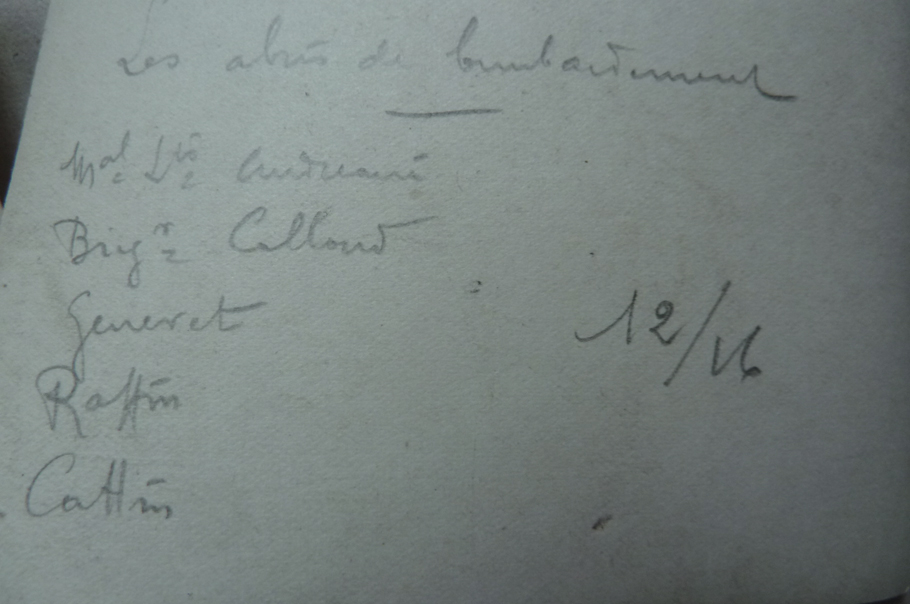 Les abris de bombardement
Mal Dis Andreani
Brigr Colloud
Generet
Raffin
12/16
Cattin